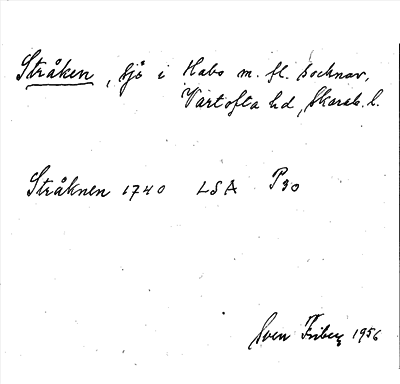 Stråken, sjö i Habo m. fl. socknar,
Vartofta hd, Skarab. l.
Stråknen 1740 LSA P30
Sven Friberg 1956